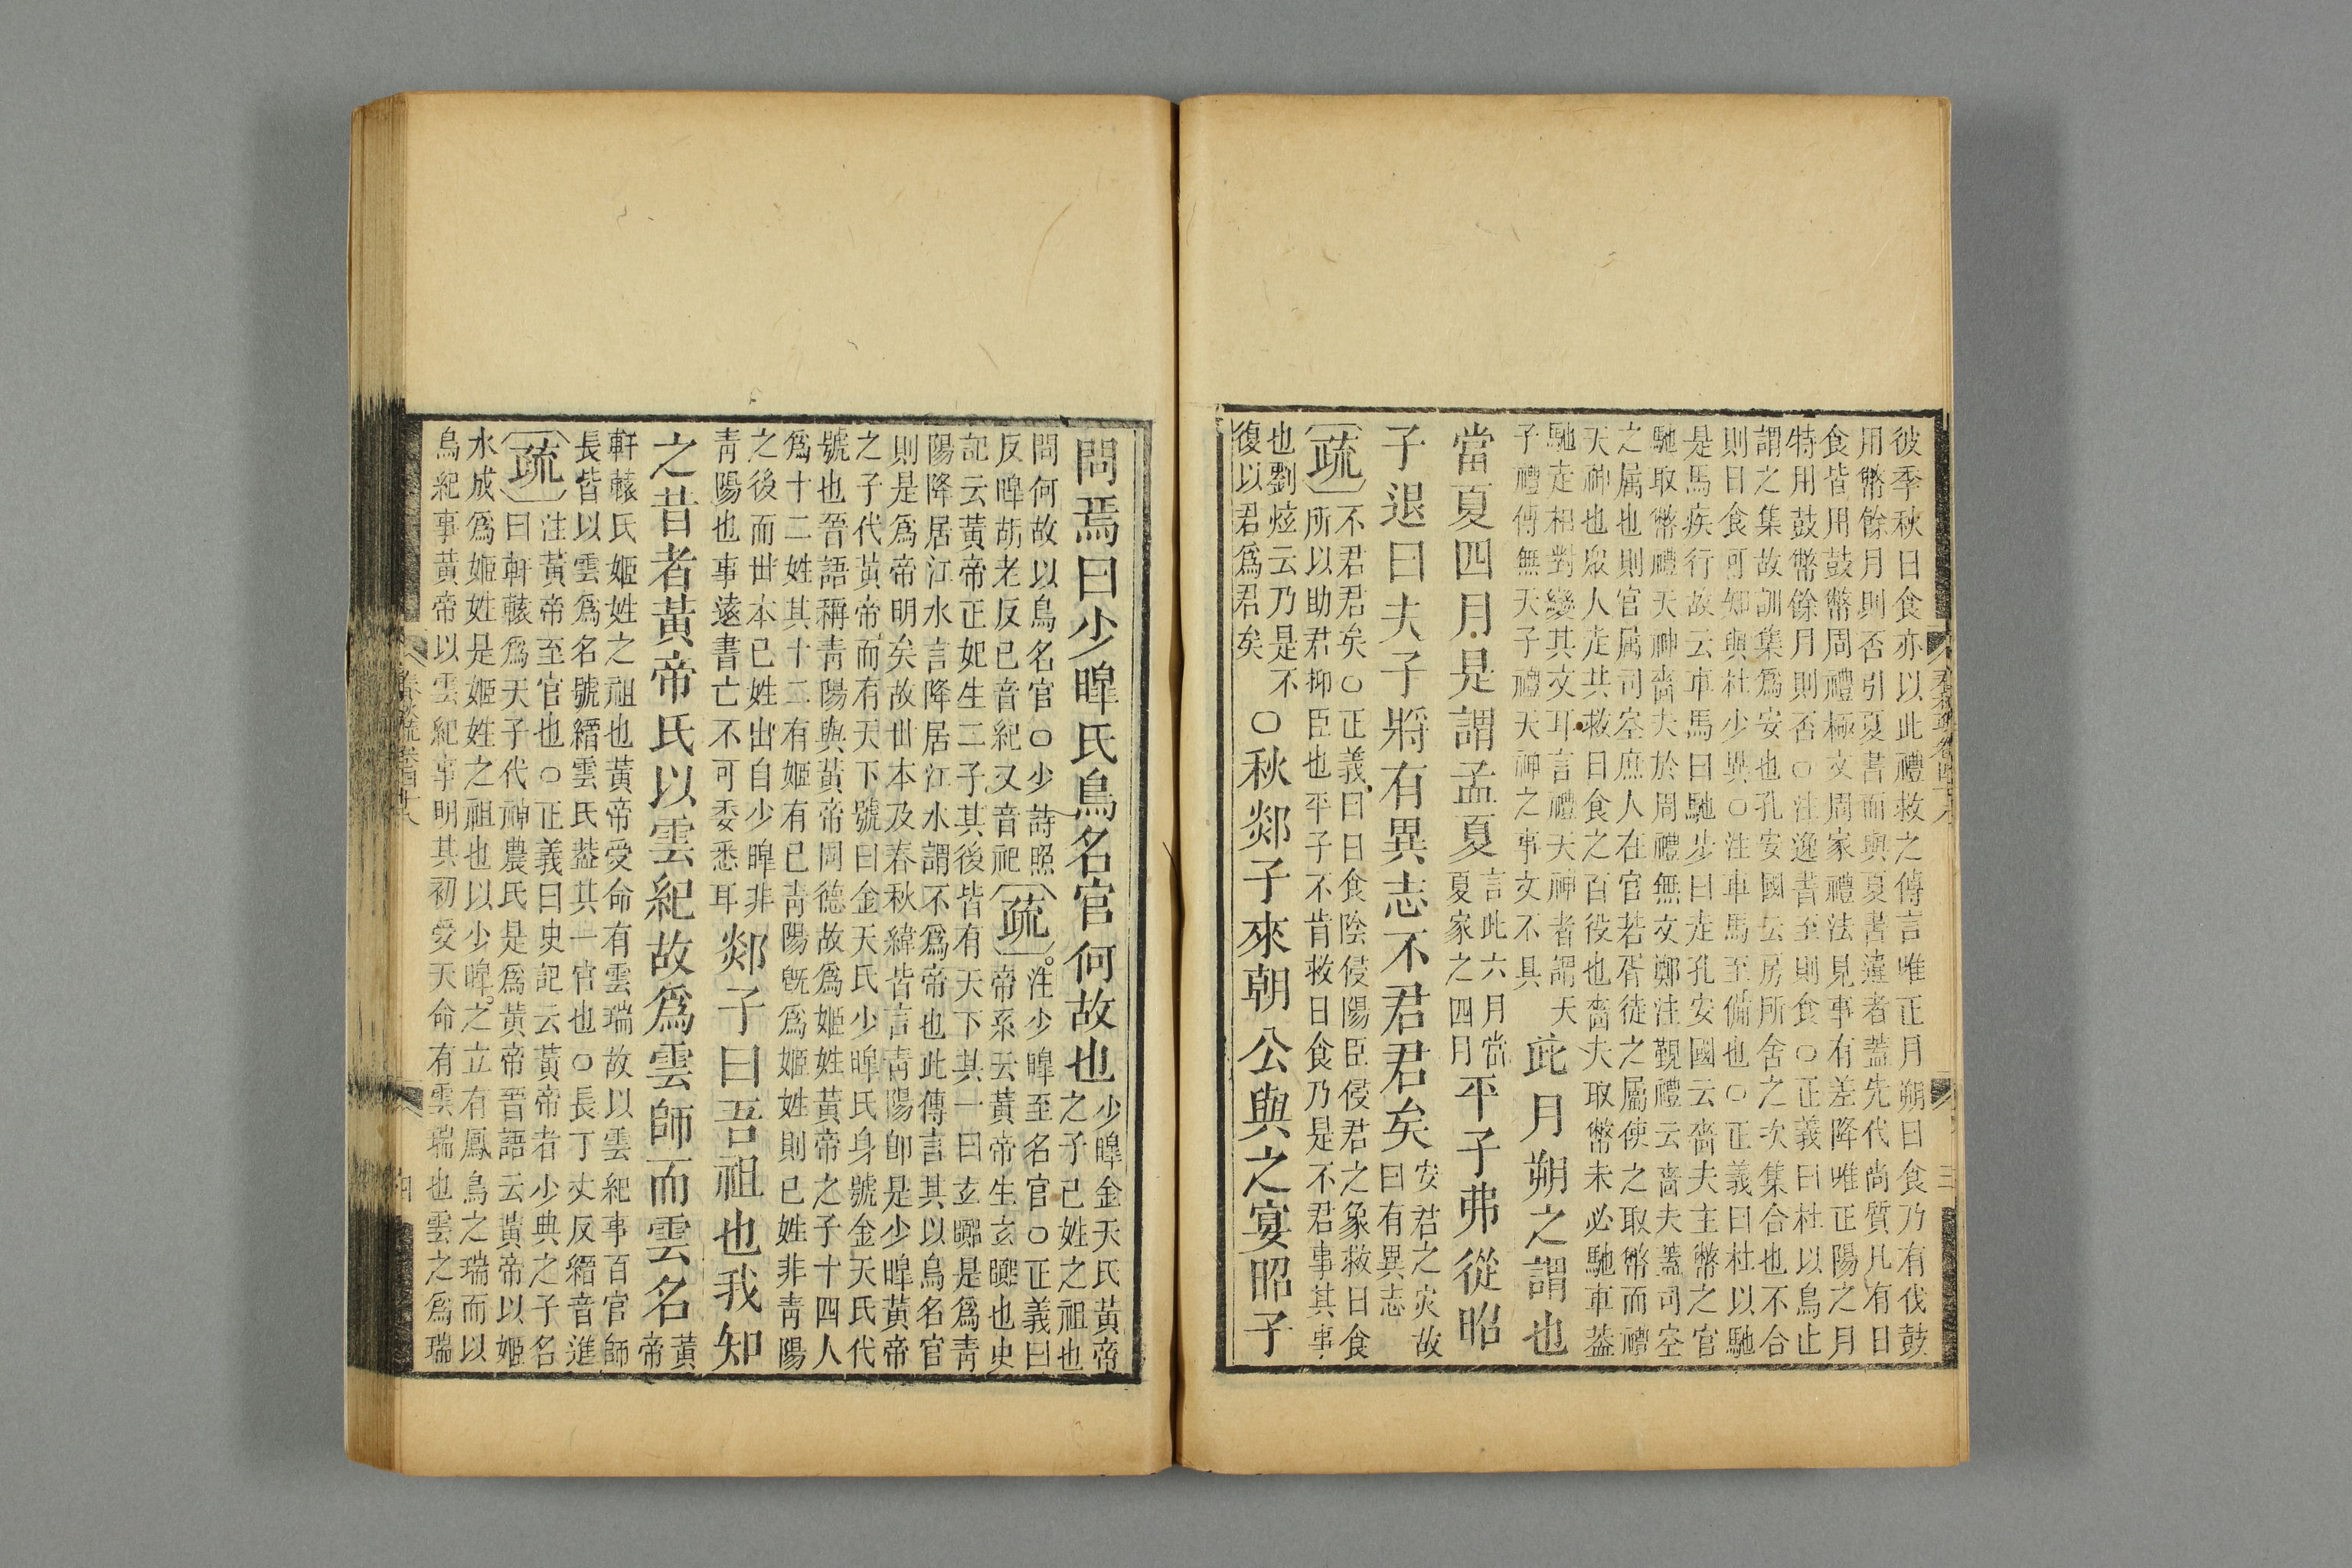 彼季秋日食亦以此禮救之傳言唯正月朔日食乃有伐鼓
用幣餘月則否引夏書而與夏書違者蓋先代尚質凡有日
食皆用鼓幣周禮極文周家禮法見事有差降唯正陽之月
特用鼓幣餘月則否○注逸書至則食○正義曰杜以鳥止
謂之集故訓集爲安也孔安國云房所舍之次集合也不合
則日食可知與杜少異○注車馬至備也○正義曰杜以馳
是馬疾行故云車馬曰馳步曰走孔安國云嗇夫主幣之官
馳取幣禮天神嗇夫於周禮無文鄭注覲禮云嗇夫蓋司空
之属也則官属司空庶人在官若胥徒之屬使之取幣而禮
天神也眾人走共救日食之百役也嗇夫取幣未必馳車葢
馳走相對變其文耳言禮天神者謂天
子禮傳無天子禮天神之事文不具
此月朔之謂也
當夏四月是謂孟夏
言此六月當
夏家之四月
平子弗從昭
子退曰夫子將有異志不君君矣
安君之灾故
曰有異志
疏
不君君矣○正義曰日食陰侵陽臣侵君之象救日食
所以助君抑臣也平子不肯救日食乃是不君事其事
也劉炫云乃是不
復以君爲君矣
○秋郯子來朝公與之宴昭子
問焉曰少皥氏鳥名官何故也
少皥金天氏黃帝
之子己姓之祖也
問何故以鳥名官○少詩照
反皥胡老反已音紀又音祀
疏
注少皥至名官○正義曰
帝系云黃帝生玄囂也史
記云黃帝正妃生二子其後皆有天下其一曰玄囂是爲青
陽降居江水言降居江水謂不爲帝也此傳言其以鳥名官
則是爲帝明矣故世本及春秋緯皆言靑陽卽是少皥黃帝
之子代黃帝而有天下號曰金天氏少皥氏身號金天氏代
號也晉語稱靑陽與黃帝同德故爲姬姓黃帝之子十四人
爲十二姓其十二有姬有已靑陽旣爲姬姓則已姓非靑陽
之後而世本已姓出自少皥非
靑陽也事遠書亡不可委悉耳
郯子曰吾祖也我知
之昔者黃帝氏以雲紀故爲雲師而雲名
黃
帝
軒轅氏姬姓之祖也黃帝受命有雲瑞故以雲紀事百官師
長皆以雲爲名號縉雲氏葢其一官也○長丁丈反縉音進
疏
注黃帝至官也○正義曰史記云黃帝者少典之子名
曰軒轅爲天子代神農氏是爲黃帝晉語云黃帝以姬
水成爲姬姓是姬姓之祖也以少皥之立有鳳鳥之瑞而以
鳥紀事黃帝以雲紀事明其初受天命有雲瑞也雲之爲瑞